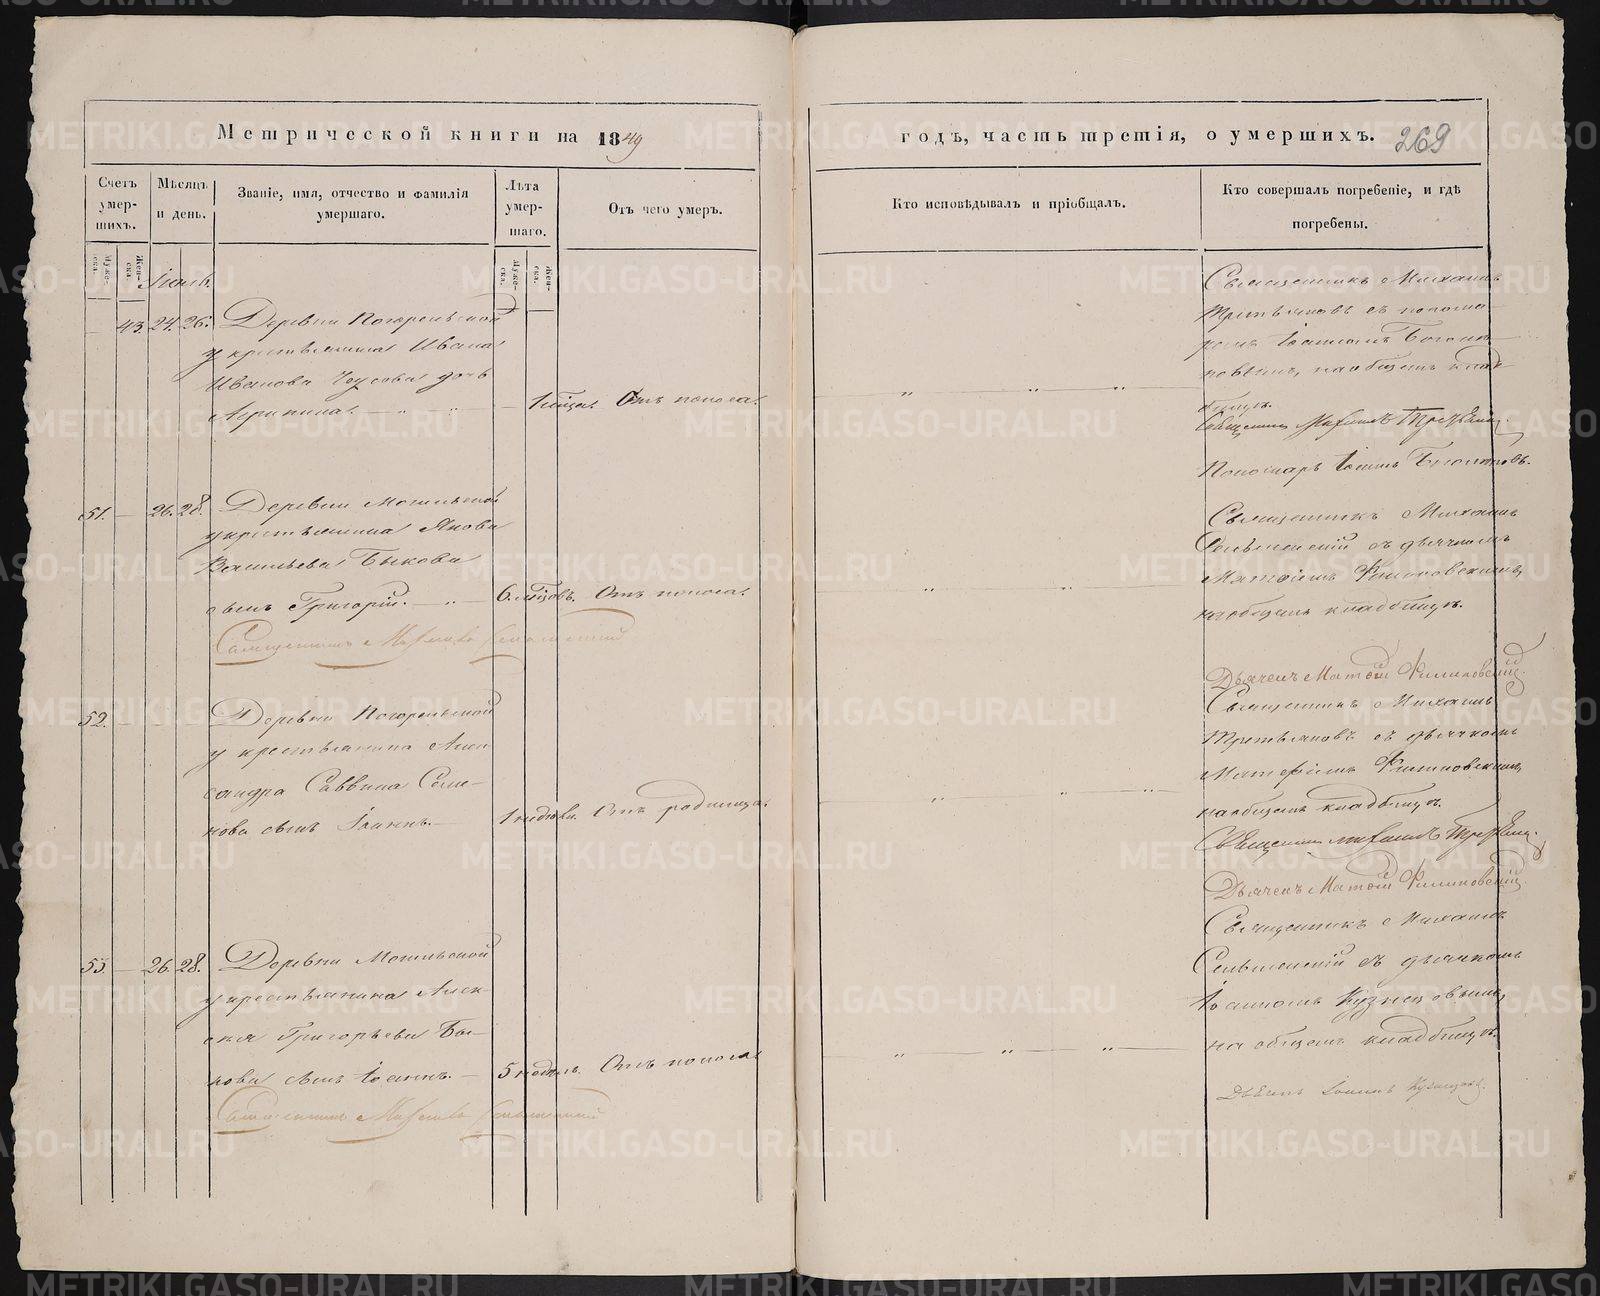 Метрической книги на 1849
годъ, часть третія, о умершихъ. 269
Счетъ умер-шихъ.
Мѣсяцъ и день.
Званіе, имя, отчество и фамилія умершаго.
Лѣта умер-шаго.
Отъ чего умеръ.
Кто исповѣдывалъ и пріобщалъ.
Кто совершалъ погребеніе, и гдѣ погребены.
Муже-ска.
Жен-ска.
Муже-ска.
Жен-ска.
Іюль.
43. 24. 26. Деревни Погорельской
у крестьянина Ивана
Иванова дочь
1 мѣсяца. Отъ поноса.
Священникъ Михаилъ
Третьяковъ съ понома-
ремъ Іоанномъ
на общемъ клад-
бищѣ.
Священникъ Михаилъ Третьяковъ.
Пономарь Іоаннъ
51. 26. 28. Деревни Могильской
у крестьянина Якова
Васильева Быкова
сынъ Григорій. 6. мѣсяцовъ. Отъ поноса.
Священникъ Михаилъ
Священникъ Михаилъ
съ дьячкомъ
на общемъ кладбищѣ.
Дьячекъ
52. Деревни Погорельской
у крестьянина Алек-
сандра Саввина Семе-
нова сынъ Іоаннъ. 1 недѣли. Отъ родимца.
Священникъ Михаилъ
Третьяковъ съ дьячкомъ
на общемъ кладбищѣ.
Священникъ Михаилъ Третьяковъ.
Дьячекъ
53. 26. 28. Деревни Могильской
у крестьянина Алек-
сѣя Григорьева Бы-
кова сынъ Іоаннъ. 5 недѣль. Отъ поноса
Священникъ Михаилъ
Священникъ Михаилъ
съ дьячкомъ
Іоанномъ Кузнецовымъ,
на общемъ кладбищѣ.
Іоаннъ Кузнецовъ.
METRIKI.GASO-URAL.RU